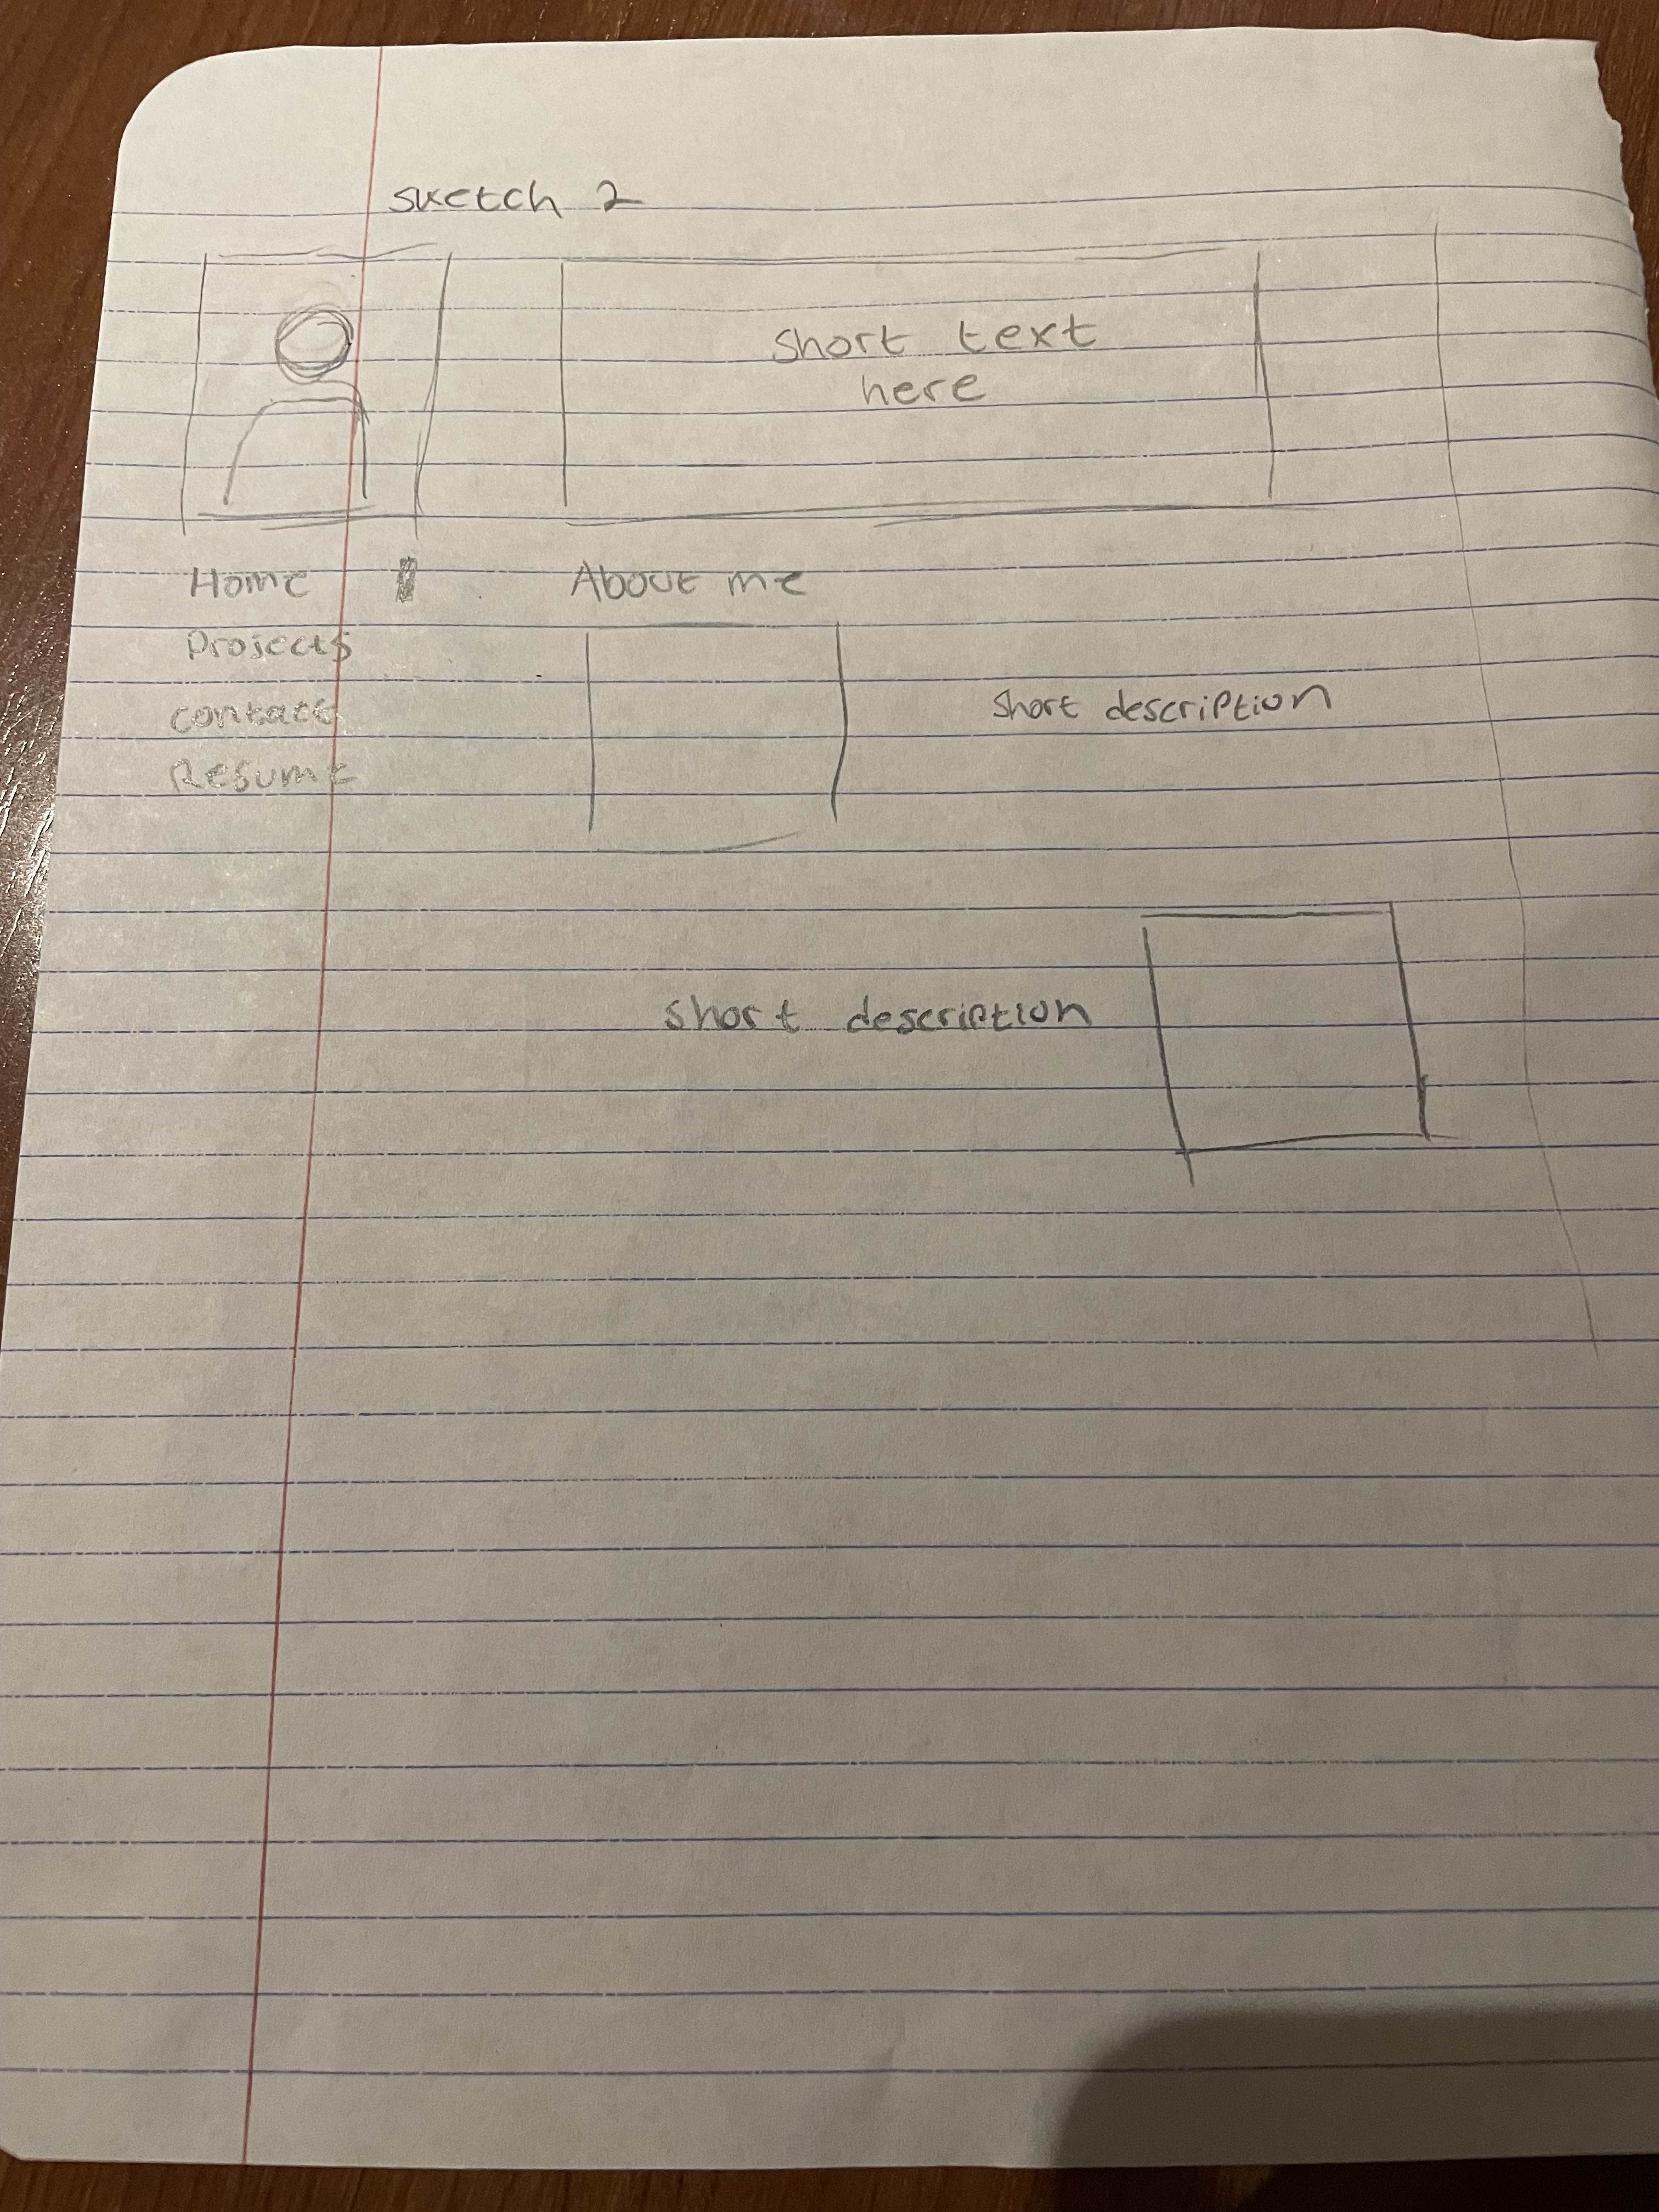 sketch 2
short text
here
Home
About me
Projects
contact
Resume
short description
short description